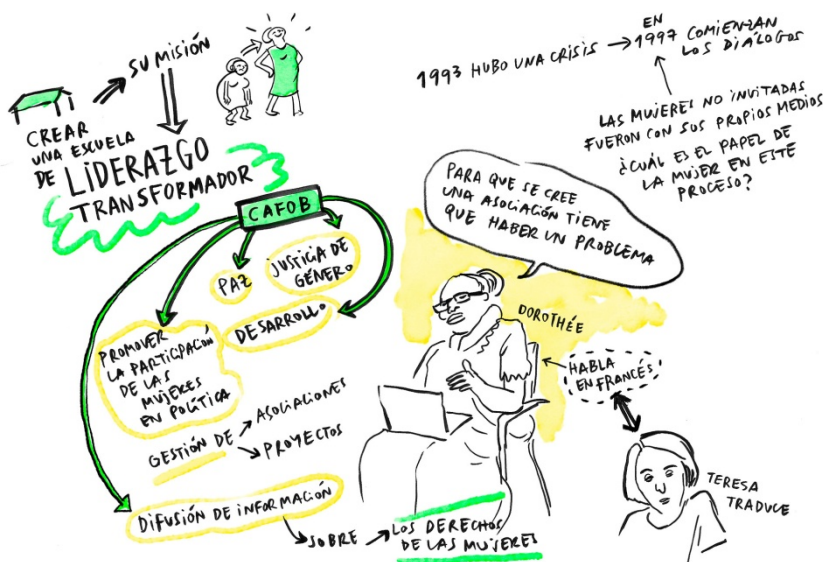 SU MISIÓN
CREAR
UNA ESCUELA
DE LIDERAZGO
TRANSFORMADOR
CAFOB
PAZ
JUSTICIA DE
GÉNERO
DESARROLLO
PROMOVER
LA PARTICIPACIÓN
DE LAS
MUJERES
EN POLÍTICA
GESTIÓN DE
ASOCIACIONES
PROYECTOS
DIFUSIÓN DE INFORMACIÓN
SOBRE
LOS DERECHOS
DE LAS MUJERES
1993 HUBO UNA CRISIS
EN
1997 COMIENZAN
LOS DIÁLOGOS
LAS MUJERES NO INVITADAS
FUERON CON SUS PROPIOS MEDIOS
¿CUÁL ES EL PAPEL DE
LA MUJER EN ESTE
PROCESO?
PARA QUE SE CREE
UNA ASOCIACIÓN TIENE
QUE HABER UN PROBLEMA
DOROTHÉE
HABLA
EN FRANCÉS
TERESA
TRADUCE